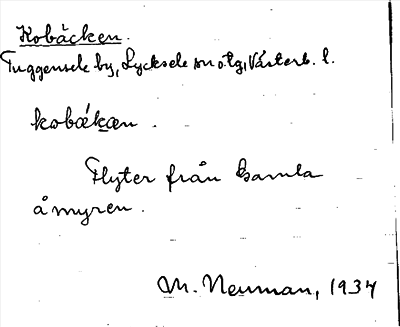 Kobäcken.
Tuggensele by, Lycksele sn o. tg, Västerb. l.
kobäkæn.
Flyter från Gamla
åmyren.
M. Neuman, 1937